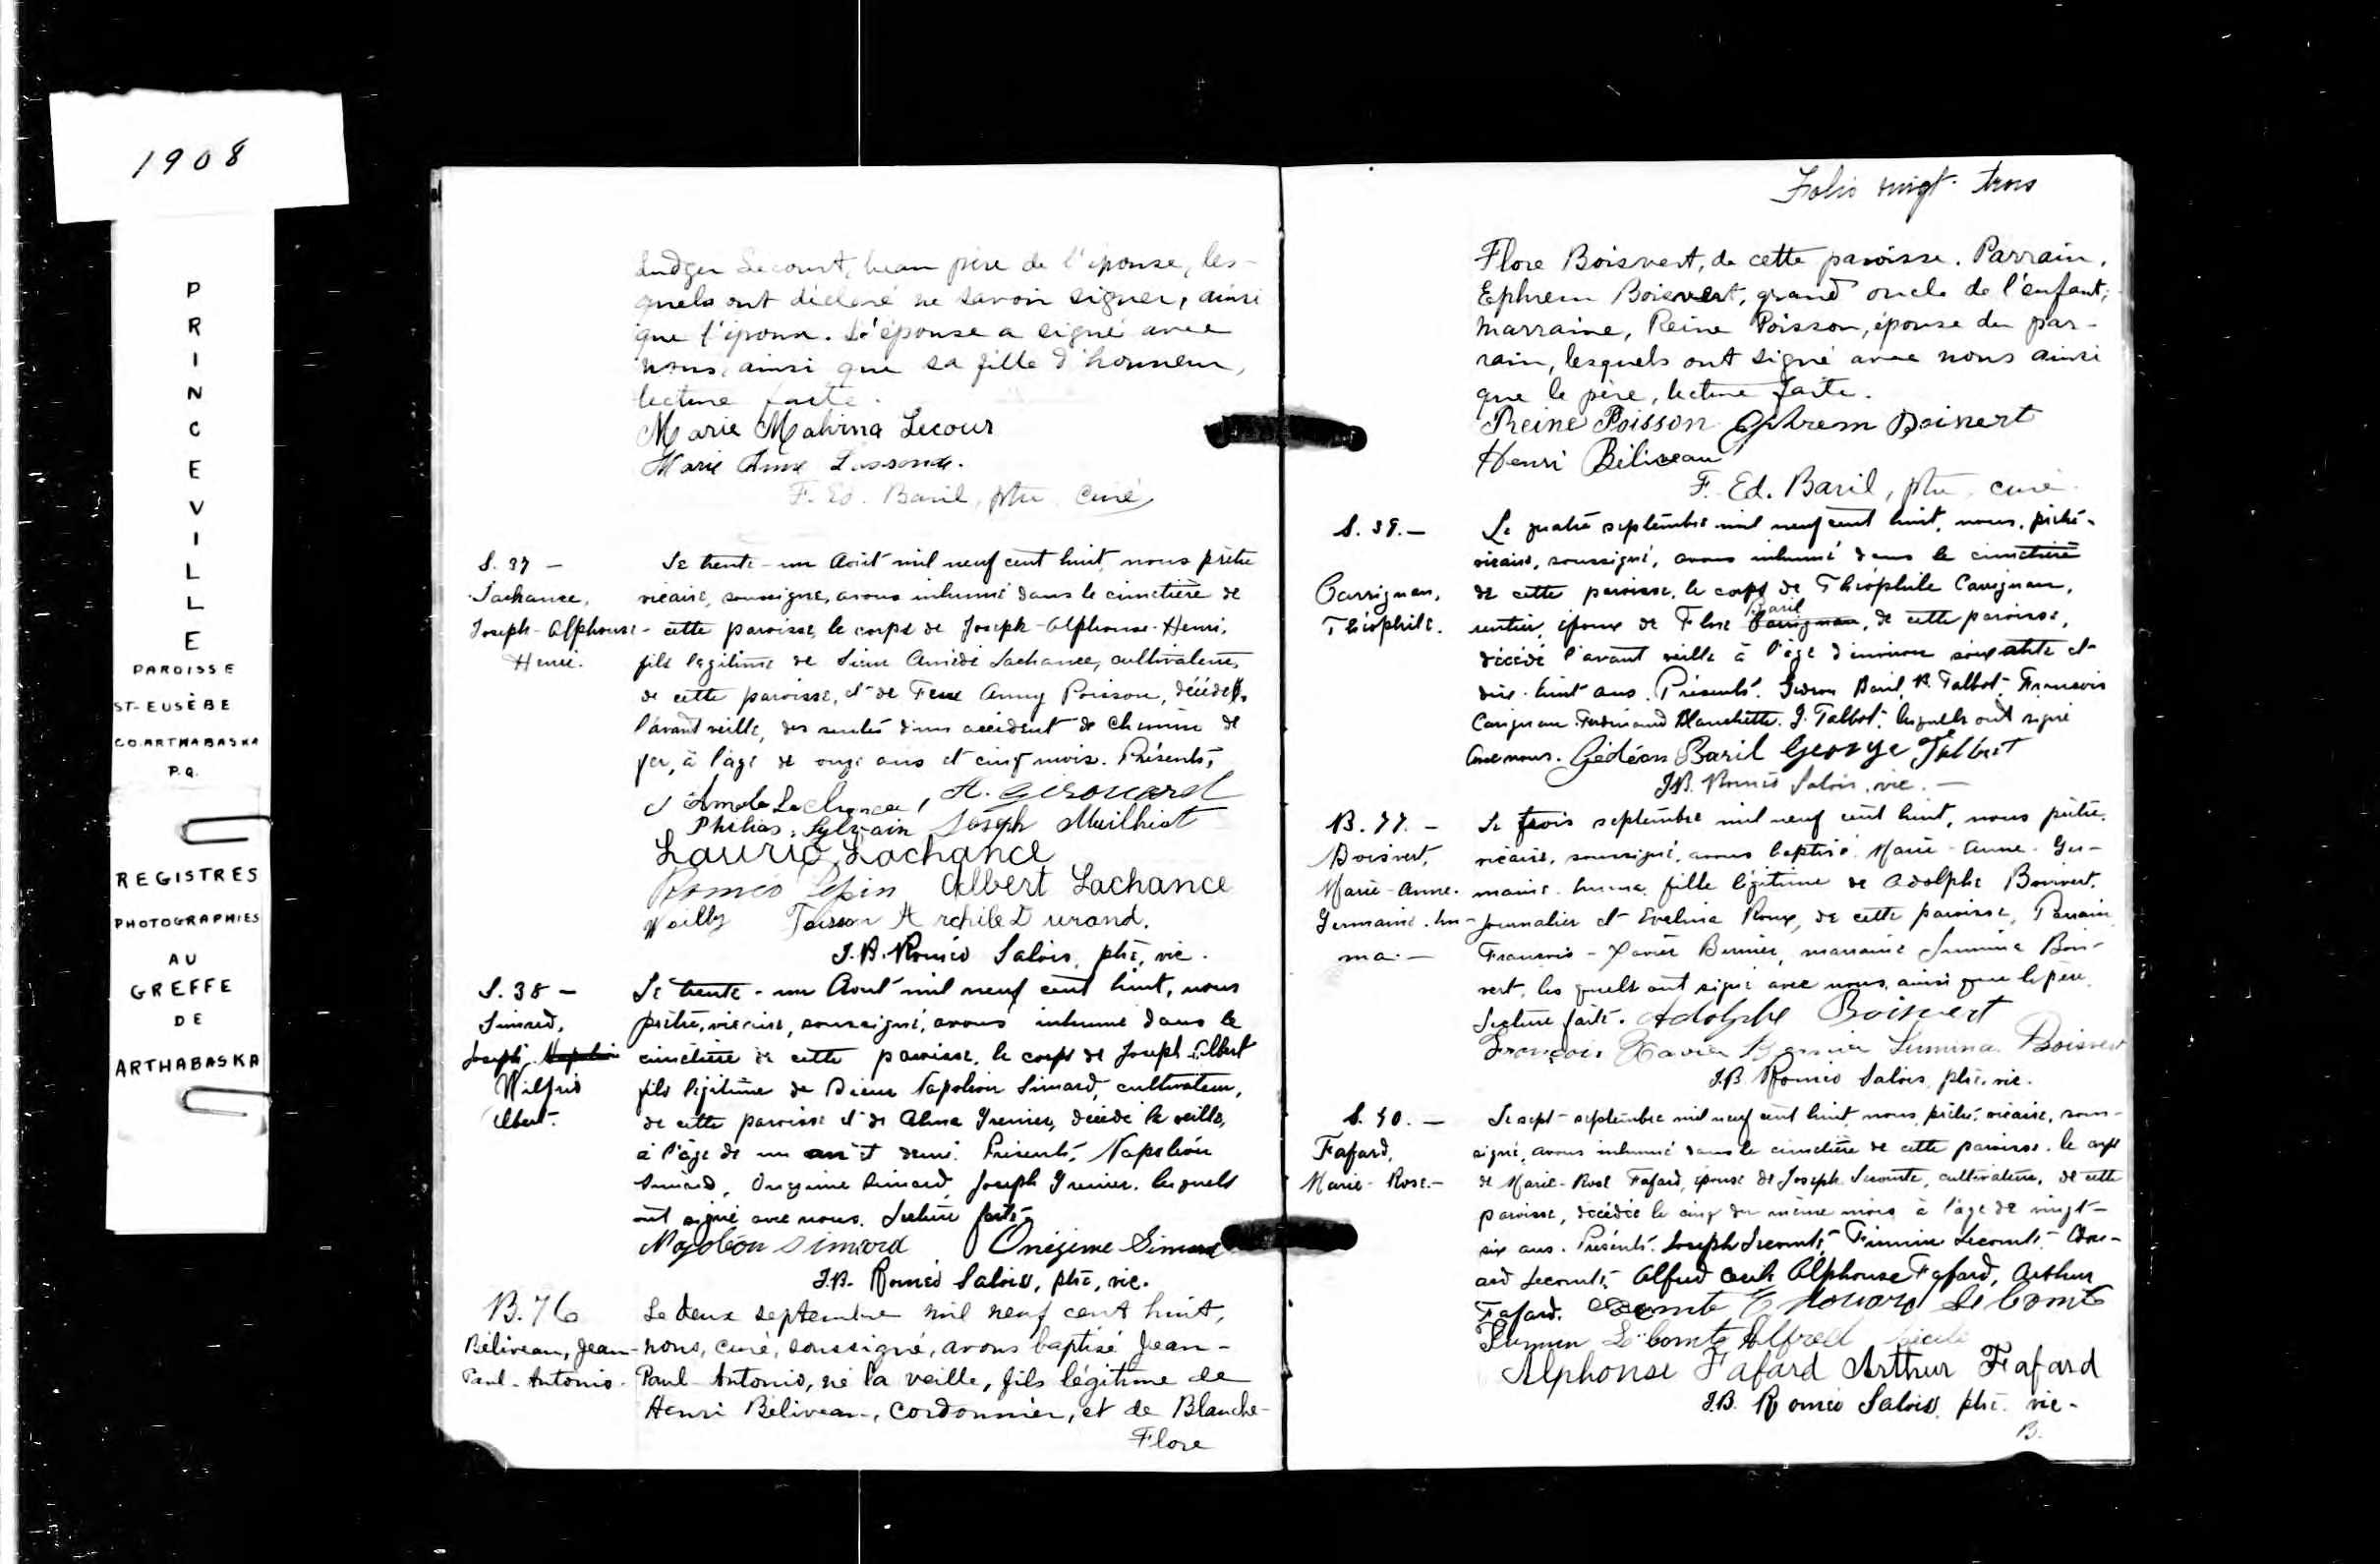 1908
PRINCEVILLE
PAROISSE
ST-EUSÈBE
CO. ARTHABASKA
P.Q.
REGISTRES
PHOTOGRAPHIES
AU
GREFFE
DE
ARTHABASKA
Ludger Lecourt, beau père de l'épouse, les-
quels ont déclaré ne savoir signer, ainsi
que l'époux. L'épouse a signé avec
nous, ainsi que sa fille d'honneur,
lecture faite.
Marie Malvina Lecour
Marie Anne Lassonde.
F. Ed. Baril, ptre curé
S. 37 -
Lachance,
Joseph-Alphonse-
Henri.
Le trente-un Août mil neuf cent huit, nous prêtre
vicaire, soussigné, avons inhumé dans le cimetière de
cette paroisse, le corps de Joseph-Alphonse-Henri,
fils légitime de Sieur Amédé Lachance, cultivateur,
de cette paroisse, et de Feue Anny Poisson, décédé
l'avant veille, des suites d'un accident de chemin de
fer, à l'âge de onze ans et cinq mois. Présents,
A. Girouard
Philias Sylvain Joseph Mailhiot
Laurio Lachance
Roméo Pepin Albert Lachance
Willy Poisson Archile Durand.
J.B. Roméo Salois, ptre, vic.
S. 38 -
Simard,
Joseph Napoléon
Wilfrid
Albert.
Le trente-un Août mil neuf cent huit, nous
prêtre, vicaire, soussigné, avons inhumé dans le
cimetière de cette paroisse, le corps de Joseph Albert
fils légitime de Sieur Napoléon Simard, cultivateur,
de cette paroisse et de Alma Grenier, décédé la veille,
à l'âge de un an et demi. Présents, Napoléon
Simard, Onézime Simard, Joseph Grenier, lesquels
ont signé avec nous. Lecture faite.
Napoléon Simard Onézime Simard
J.B. Roméo Salois, ptre, vic.
B. 76
Béliveau, Jean-
Paul-Antonio.
Le deux septembre mil neuf cent huit,
nous, curé, soussigné, avons baptisé Jean-
Paul-Antonio, né la veille, fils légitime de
Henri Béliveau, cordonnier, et de Blanche-
Flore
Folio vingt-trois
Flore Boisvert, de cette paroisse. Parrain,
Ephrem Boisvert, grand oncle de l'enfant;
marraine, Reine Poisson, épouse du par-
rain, lesquels ont signé avec nous ainsi
que le père, lecture faite.
Reine Poisson Ephrem Boisvert
Henri Béliveau
F. Ed. Baril, ptre, curé
S. 39. -
Carrignan,
Théophile.
Le quatre septembre mil neuf cent huit, nous, prêtre-
vicaire, soussigné, avons inhumé dans le cimetière
de cette paroisse, le corps de Théophile Carrignan,
rentier, époux de Flore Carrignan Baril, de cette paroisse,
décédé l'avant veille à l'âge d'environ soixante et
dix-huit ans. Présents, Gédéon Baril, Talbot, François
Carignan, Ferdinand Blanchette, G. Talbot, lesquels ont signé
avec nous. Gédéon Baril George Talbot
J.B. Roméo Salois, vic. -
B. 77. -
Boisvert,
Marie-Anne-
Germaine-Em-
ma. -
Le trois septembre mil neuf cent huit, nous prêtre,
vicaire, soussigné, avons baptisé Marie-Anne-Ger-
maine-Emma, fille légitime de Adolphe Boisvert,
journalier et Evelina Roux, de cette paroisse, Parrain
François-Xavier Bernier, marraine Lumina Bois-
vert, lesquels ont signé avec nous, ainsi que le père,
Lecture faite. Adolphe Boisvert
François Xavier Bernier Lumina Boisvert
J.B. Roméo Salois, ptre, vic.
S. 40. -
Fafard,
Marie-Rose. -
Le sept septembre mil neuf cent huit, nous, prêtre, vicaire, sous-
signé, avons inhumé dans le cimetière de cette paroisse, le corps
de Marie-Rose Fafard, épouse de Joseph Lecomte, cultivateur, de cette
paroisse, décédée le cinq du même mois à l'âge de vingt-
six ans. Présents, Joseph Lecomte, Firmin Lecomte, Edou-
ard Lecomte, Alfred Alphonse Fafard, Arthur
Fafard. Edouard Le Comte
Firmin Le Comte Alfred
Alphonse Fafard Arthur Fafard
J.B. Roméo Salois, ptre, vic.
B.